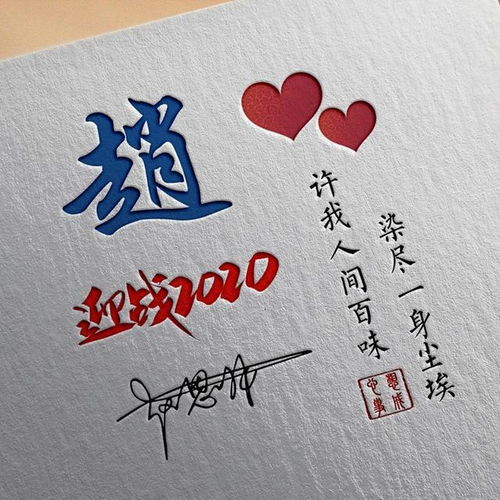 趙
迎战2020
染尽一身尘埃
许我人间百味
心想事成